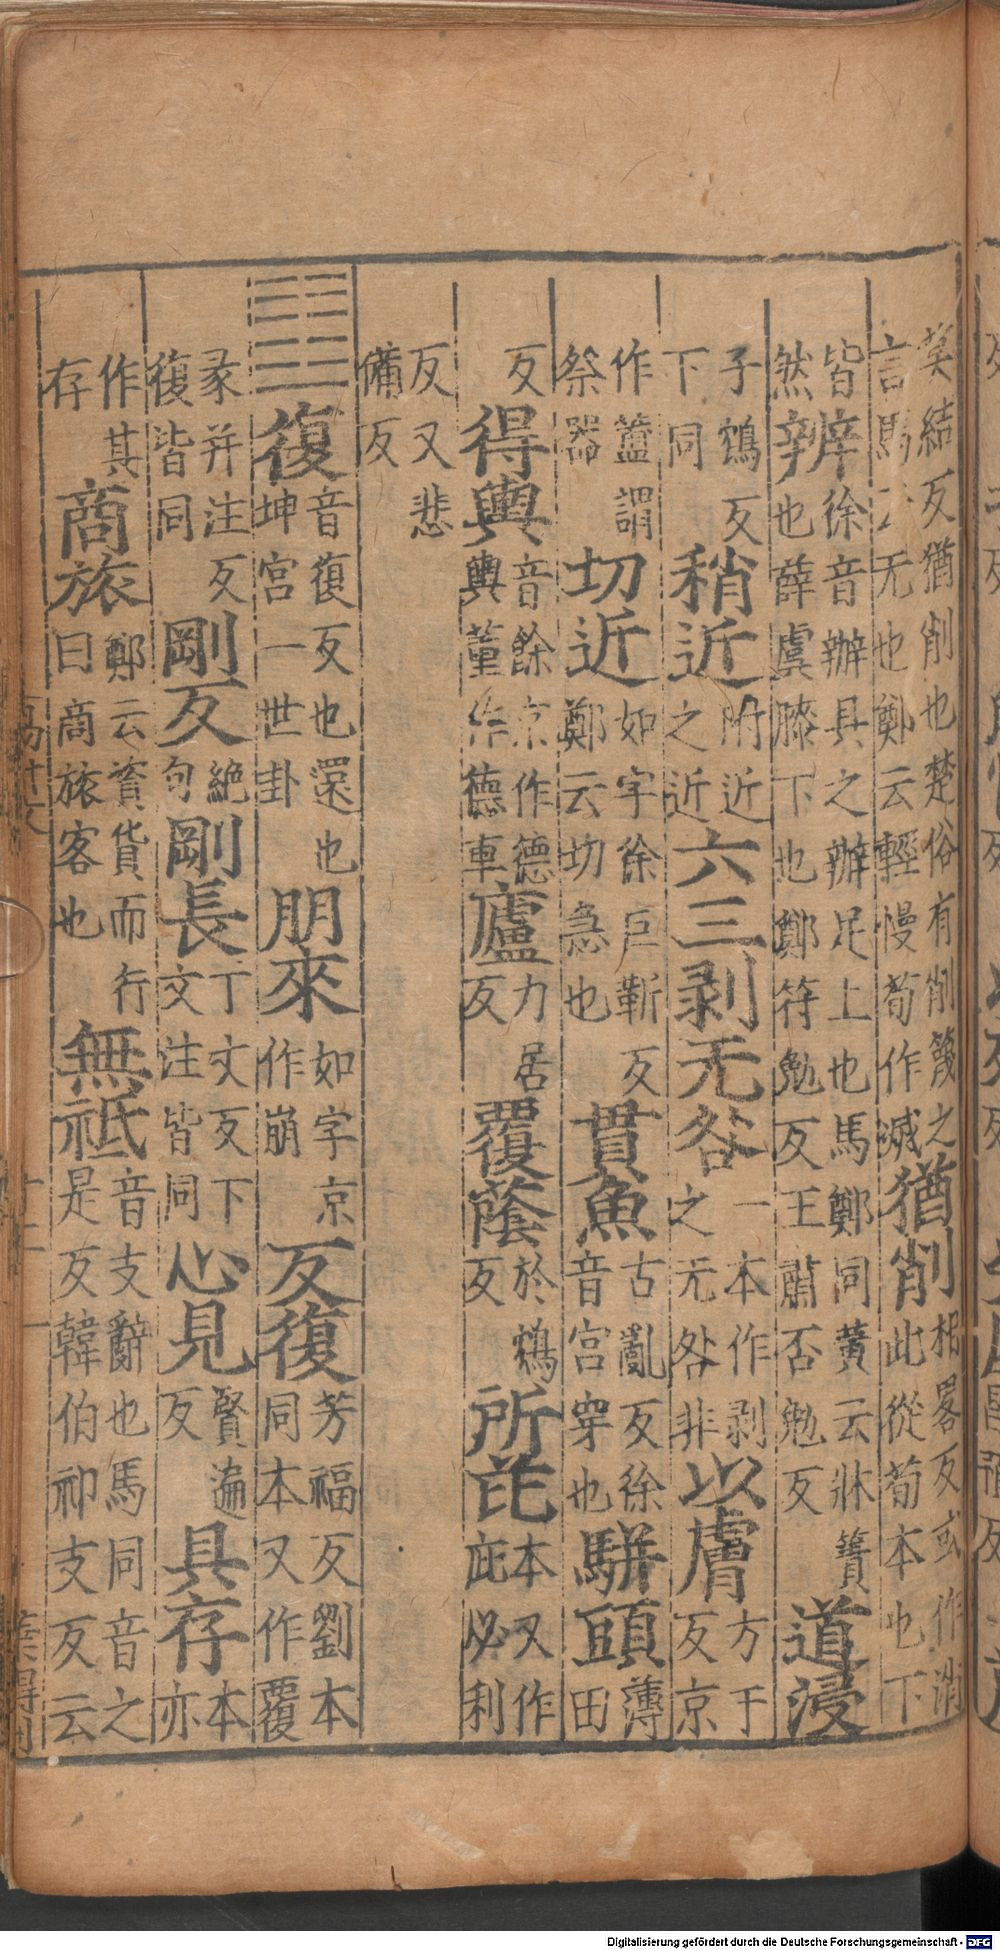 莫結反猶削也楚俗有削篾之言馬云无也鄭云輕慢荀作滅猶削相畧反或作消此從荀本也下
皆然辨徐音辦具之辦足上也馬鄭同黃云牀簀也薛虞膝下也鄭符勉反王肅否勉反道浸
子鴆反下同稍近附近之近六三剥无咎一本作剥之无咎非以膚方于反京
作簠謂祭器切近如字徐巨靳反鄭云切急也貫魚古亂反徐音宮穿也駢頭薄田
反得輿音餘京作德輿董作德車廬力居反覆蔭於鴆反所芘本又作庇必利
反又悲備反
䷗復音復反也還也坤宮一世卦朋來如字京作崩反復芳福反劉本同本又作覆
彖并注反復皆同剛反絶句剛長丁丈反下文注皆同心見賢遍反具存本亦
作其存商旅鄭云資貨而行曰商旅客也無祗音支辭也馬同音之是反韓伯祁支反云
Digitalisierung gefördert durch die Deutsche Forschungsgemeinschaft - DFG